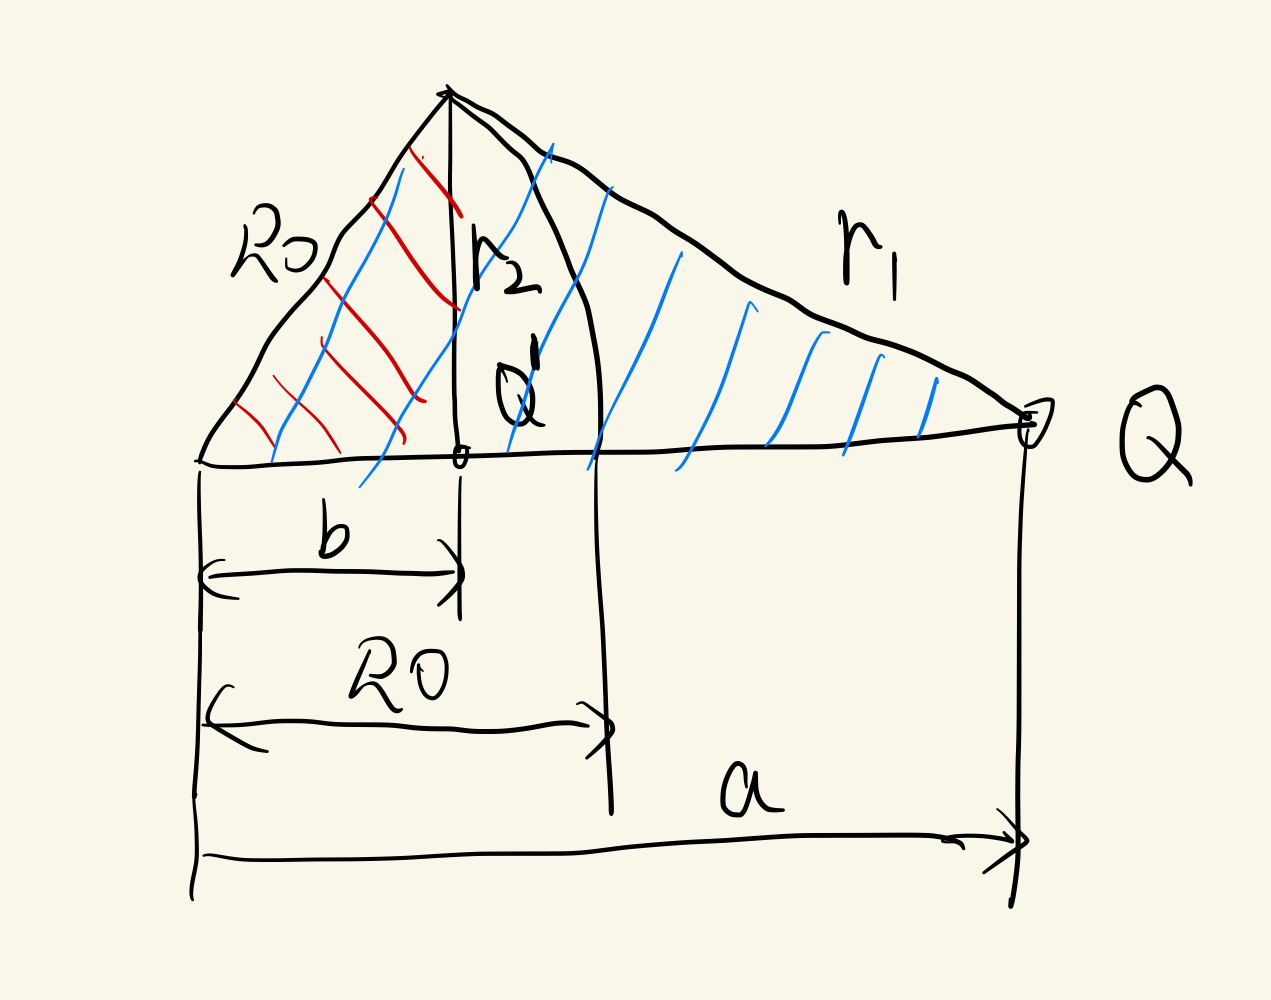 R0
r2
r1
Q'
Q
b
R0
a